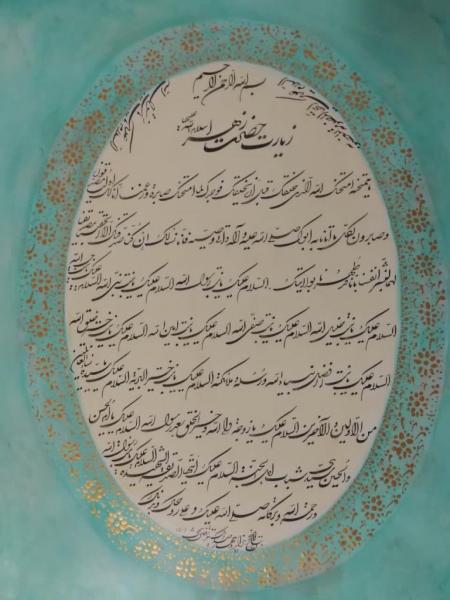 بسم الله الرحمن الرحیم
زیارت حضرت زهرا سلام الله علیها
یا ممتحنة امتحنک الله الذی خلقک قبل ان یخلقک فوجدک لما امتحنک صابرة وزعمنا انا لک اولیاء ومصدقون
وصابرون لکل ما اتانا به ابوک صلی الله علیه وآله واتی به وصیه فانا نسئلک ان کنا صدقناک الا الحقتنا بتصدیقنا
لهما لنبشر انفسنا بانا قد طهرنا بولایتک السلام علیک یا بنت رسول الله السلام علیک یا بنت نبی الله السلام علیک یا بنت حبیب الله
السلام علیک یا بنت خلیل الله السلام علیک یا بنت صفی الله السلام علیک یا بنت امین الله السلام علیک یا بنت خیر خلق الله
السلام علیک یا بنت افضل انبیاء الله ورسله وملائکته السلام علیک یا بنت خیر البریة السلام علیک یا سیدة نساء العالمین
من الاولین والآخرین السلام علیک یا زوجة ولی الله وخیر الخلق بعد رسول الله السلام علیک یا ام الحسن
والحسین سیدی شباب اهل الجنة السلام علیک ایتها الصدیقة الشهیدة السلام علیک
ورحمة الله وبرکاته صلی الله علیک وعلی روحک وبدنک